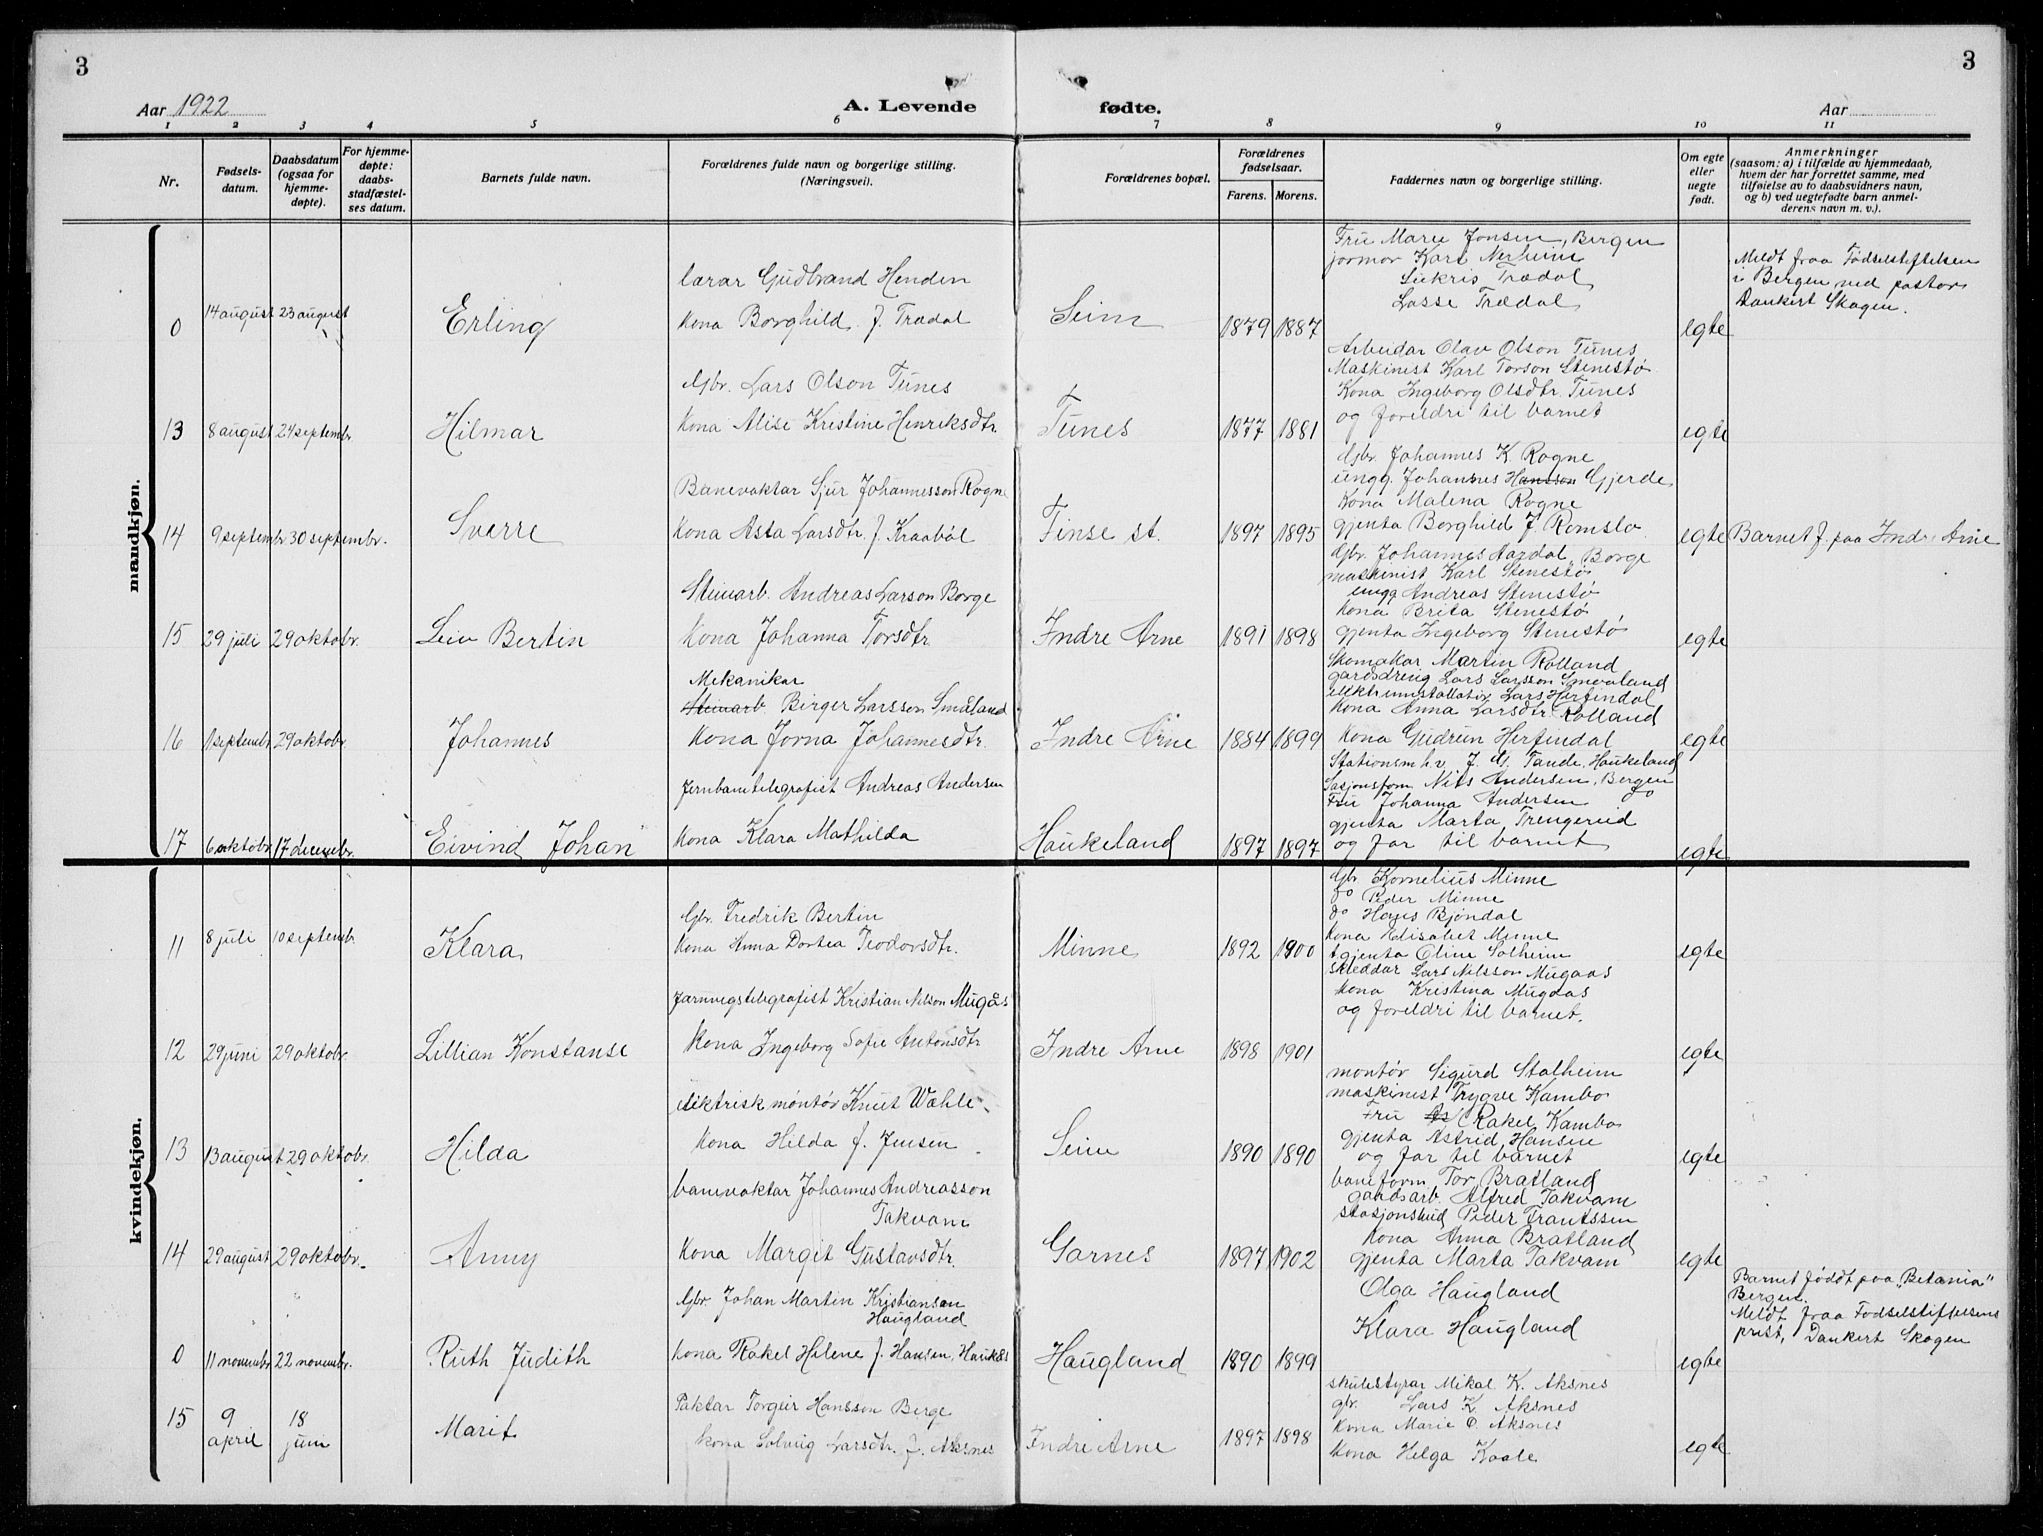 3
3
Aar 1922
A. Levende
fødte.
Aar
1
2
3
4
5
6
7
8
9
10
11
Nr.
Fødsels-
datum.
Daabsdatum
(ogsaa for
hjemme-
døpte).
For hjemme-
døpte:
daabs-
stadfæstel-
ses datum.
Barnets fulde navn.
Forældrenes fulde navn og borgerlige stilling.
(Næringsvei).
Forældrenes bopæl.
Forældrenes
fødselsaar.
Farens.
Morens.
Faddernes navn og borgerlige stilling.
Om egte
eller
uegte
født.
Anmerkninger
(saasom: a) i tilfælde av hjemmedaab,
hvem der har forrettet samme, med
tilføielse av to daabsvidners navn,
og b) ved uegtefødte barn anmel-
derens navn m. v.).
mandkjøn.
0
14 august
23 august
Erling
lærar Gudbrand Henden
Kona Borghild f. Trædal
Seim
1879
1887
Fru Marie Jonsen, Bergen
jormor Kari Nerheim
Sukris Trædal
Lasse Trædal
egte
Meldt fraa Fødselstiftelsen
i Bergen ved pastor
Dankert Skagen.
13
8 august
24 septembr
Hilmar
Gbr. Lars Olson Tunes
Kona Alise Kristine Henriksdtr.
Tunes
1877
1881
Arbeidar Olav Olson Tunes
Maskinist Karl Torson Stenestø
Kona Ingeborg Olsdtr. Tunes
og foreldri til barnet
egte
14
9 septembr
30 septembr.
Sverre
Banevaktar Sjur Johannesson Rogne
Kona Asta Larsdtr. f. Kraabøl
Finse st.
1897
1895
Gbr. Johannes K. Rogne
ungg. Johannes Hansson Gjerde
Kona Malena Rogne
gjenta Borghild f. Romslo
egte
Barnet f. paa Indre Arne
15
29 juli
29 oktobr.
Leiv Bertin
Steinarb. Andreas Larson Borge
Kona Johanna Torsdtr.
Indre Arne
1891
1898
Gbr. Johannes Aardal, Borge
maskinist Karl Stenestø
ungg Andreas Stenestø
Kona Brita Stenestø
gjenta Ingeborg Stenestø
egte
16
1 septembr
29 oktobr.
Johannes
Mekanikar
Steinarb. Birger Larsson Småland
Kona Jorna Johannesdtr.
Indre Arne
1884
1899
Skomakar Martin Rolland
gardsdreng Lars Larsson Smaaland
elektr. installatør Lars Herfindal
Kona Anna Larsdtr. Rolland
Kona Gudrun Herfindal
egte
17
6 oktobr.
17 decembr.
Eivind Johan
Jernbanetelegrafist Andreas Andersen
Kona Klara Mathilda
Haukeland
1897
1897
Stationsm. h.v. J. G. Tande, Haukeland
Stasjonsform. Nils Andersen, Bergen
Fru Johanna Andersen do
gjenta Marta Trengerud
og far til barnet
egte
kvindekjøn.
11
8 juli
10 septembr
Klara
Gbr. Fredrik Bertin
Kona Anna Dortea Teodorsdtr.
Minne
1892
1900
Gbr Kornelius Minne
do Peder Minne
do Hans Bjøndal
Kona Elisabet Minne
gjenta Oline Solheim
egte
12
29 juni
29 oktobr.
Lillian Konstanse
Jarnvegstelegrafist Kristian Nilson Mugås
Kona Ingeborg Sofie Antonsdtr
Indre Arne
1898
1901
skreddar Lars Nilsson Mugaas
Kona Kristina Mugaas
og foreldri til barnet.
egte
13
13 august
29 oktobr.
Hilda
elektrisk montør Knut Wæhle.
Kona Hilda f. Jensen
Seim
1890
1890
montør Sigurd Stalheim
maskinist Trygve Kambo
Fru Rakel Kambo
gjenta Astrid Hansen
og far til barnet
egte
14
29 august
29 oktobr.
Anny
banevaktar Johannes Andreasson
Takvam
Kona Margit Gustavsdtr.
Garnes
1897
1902
baneform Tor Bratland
gaardsarb. Alfred Takvam
stasjonsbud Peder Frantssen
Kona Anna Bratland
gjenta Marta Takvam
egte
0
11 novembr
22 novembr.
Ruth Judith
Gbr. Johan Martin Kristiansen
Haugland
Kona Rakel Helene f. Hansen, Haukås
Haugland
1890
1899
Olga Haugland
Klara Haugland
egte
Barnet føddt paa „Betania"
Bergen.
Meldt fraa Fødselstiftelsens
prest, Dankert Skagen
15
9
april
18
juni
Marit
Paktar Torgeir Hansson Berge
Kona Solveig Larsdtr. f. Aksnes
Indre Arne
1897
1898
skulestyrar Mikal K. Aksnes
gbr. Lars K. Aksnes
Kona Marie O. Aksnes
Kona Helga Kaale
egte